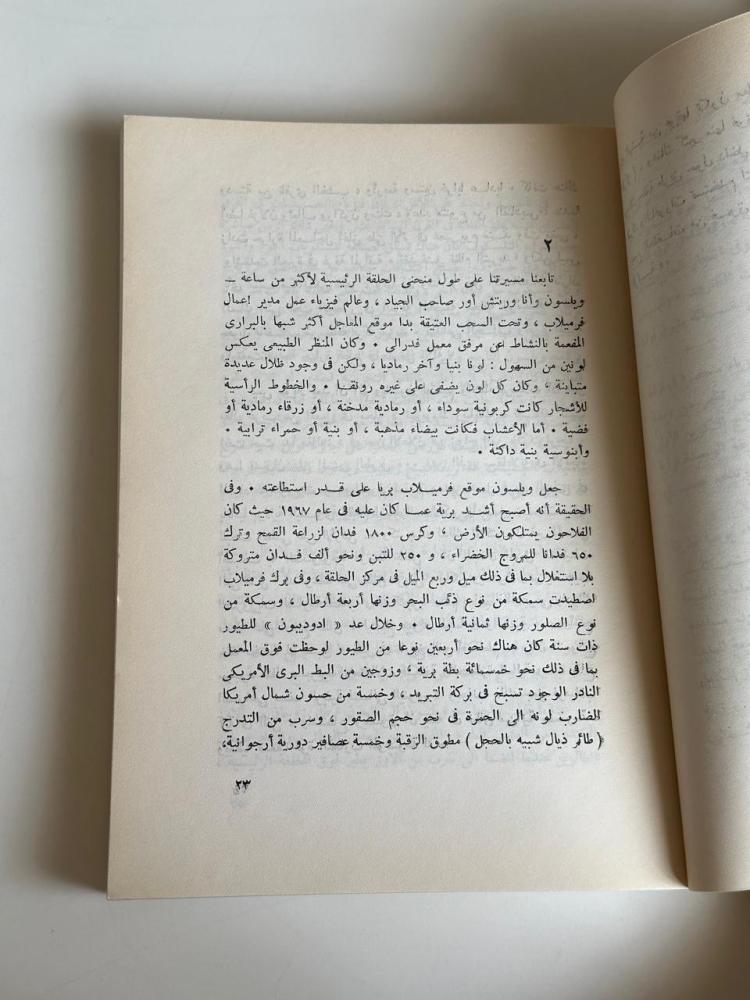 ٢
تابعنا مسيرتنا على طول منحنى الحلقة الرئيسية لأكثر من ساعة ــ
ويلسون وأنا وريتش أور صاحب الجياد ، وعالم فيزياء عمل مدير اعمال
فرميلاب ، وتحت السحب العتيقة بدا موقع المفاجل أكثر شبها بالبرارى
المفعمة بالنشاط عن مرفق معمل فدرالى • وكان المنظر الطبيعى يعكس
لونين من السهول : لونا بنيا وآخر رماديا ، ولكن فى وجود ظلال عديدة
متباينة ، وكان كل لون يضفى على غيره رونقا • والخطوط الرأسية
للأشجار كانت كربونية سوداء ، أو رمادية مدخنة ، أو زرقاء رمادية أو
فضية • أما الأعشاب فكانت بيضاء مذهبة ، أو بنية أو حمراء ترابية •
وأبنوسية بنية داكنة •
جعل ويلسون موقع فرميلاب بريا على قدر استطاعته • وفى
الحقيقة أنه أصبح أشد برية عما كان عليه فى عام ١٩٦٧ حيث كان
الفلاحون يمتلكون الأرض ، وكرس ١٨٠٠ فدان لزراعة القمح وترك
٦٥٠ فدانا للمروج الخضراء ، و ٢٥٠ للتبن ونحو ألف فدان متروكة
بلا استغلال بما فى ذلك ميل وربع الميل فى مركز الحلقة ، وفى برك فرميلاب
اصطيدت سمكة من نوع ذئب البحر وزنها أربعة أرطال ، وسمكة من
نوع الصلور وزنها ثمانية أرطال • وخلال عد « ادوديبون » للطيور
ذات سنة كان هناك نحو أربعين نوعا من الطيور لوحظت فوق المعمل
بما فى ذلك نحو خمسمائة بطة برية ، وزوجين من البط البرى الأمريكى
النادر الوجود تسبح فى بركة التبريد ، وخمسة من حسون شمال أمريكا
الضارب لونه الى الحمرة فى نحو حجم الصقور ، وسرب من التدرج
( طائر ذيال شبيه بالحجل ) مطوق الرقبة وخمسة عصافير دورية أرجوانية،
٢٣